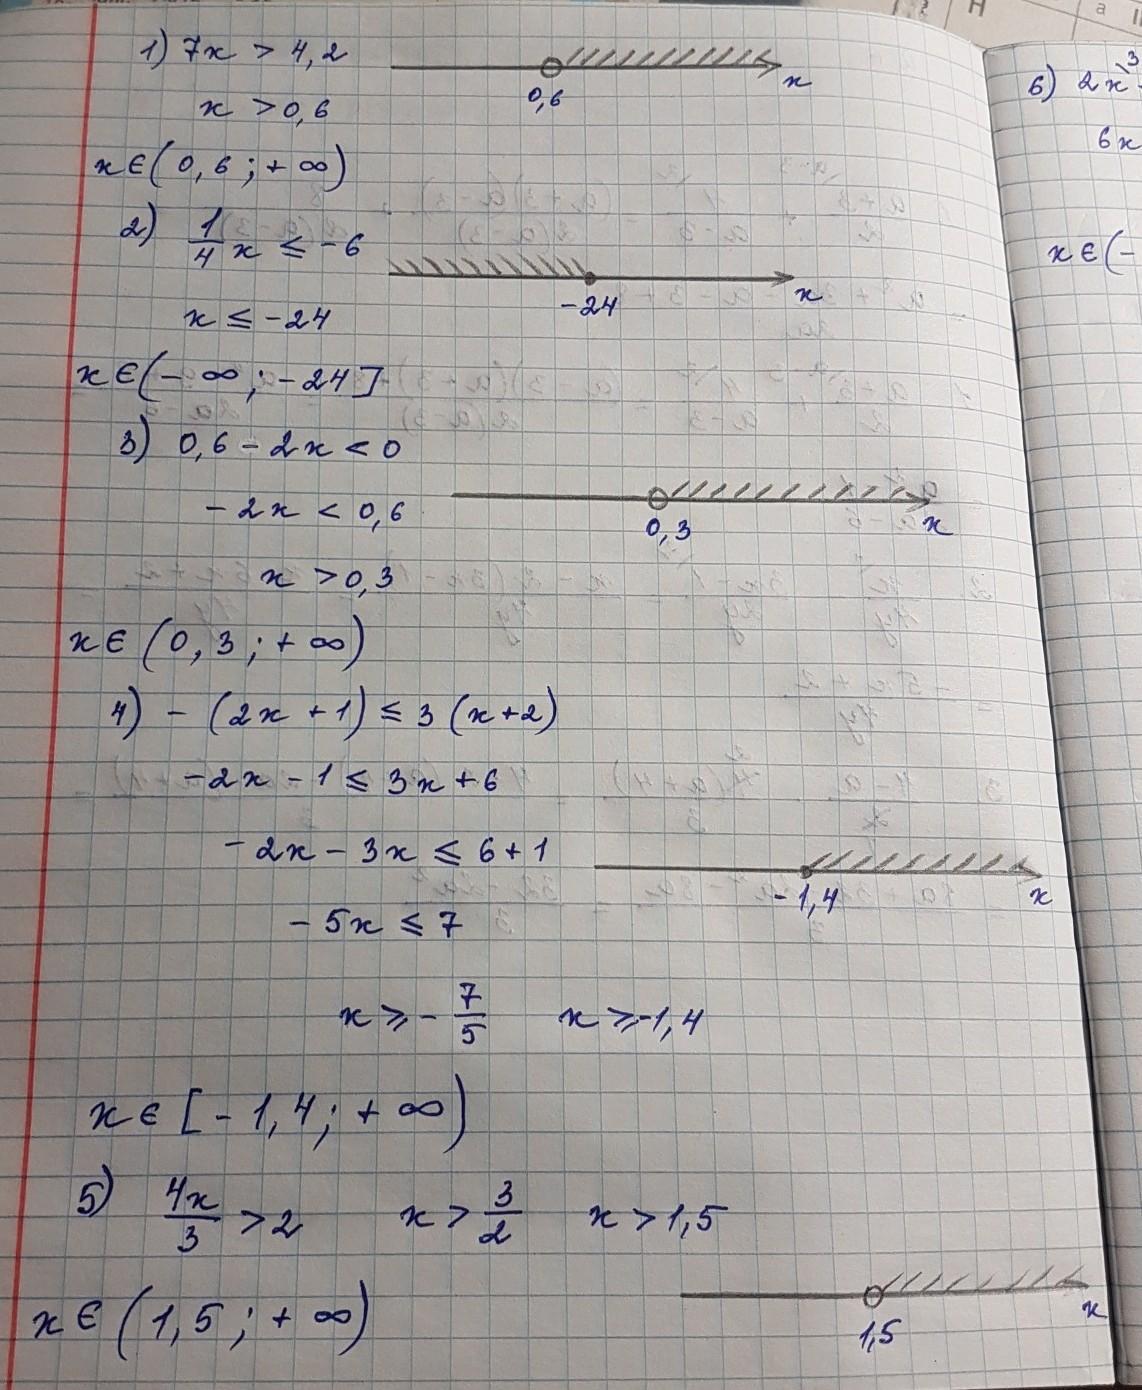 1) 7x > 4,2
x > 0,6
0,6
x
x ∈ (0,6 ; + ∞)
2) 1/4 x ≤ -6
x ≤ -24
-24
x
x ∈ (- ∞ ; -24]
3) 0,6 - 2x < 0
- 2x < 0,6
x > 0,3
0,3
x
x ∈ (0,3 ; + ∞)
4) - (2x + 1) ≤ 3 (x+2)
-2x - 1 ≤ 3x + 6
- 2x - 3x ≤ 6 + 1
- 5x ≤ 7
- 1,4
x
x ≥ - 7/5 x ≥ -1,4
x ∈ [- 1,4 ; + ∞)
5) 4x/3 > 2 x > 3/2 x > 1,5
x ∈ (1,5 ; + ∞)
1,5
x
6) 2x
6x
x ∈ (-